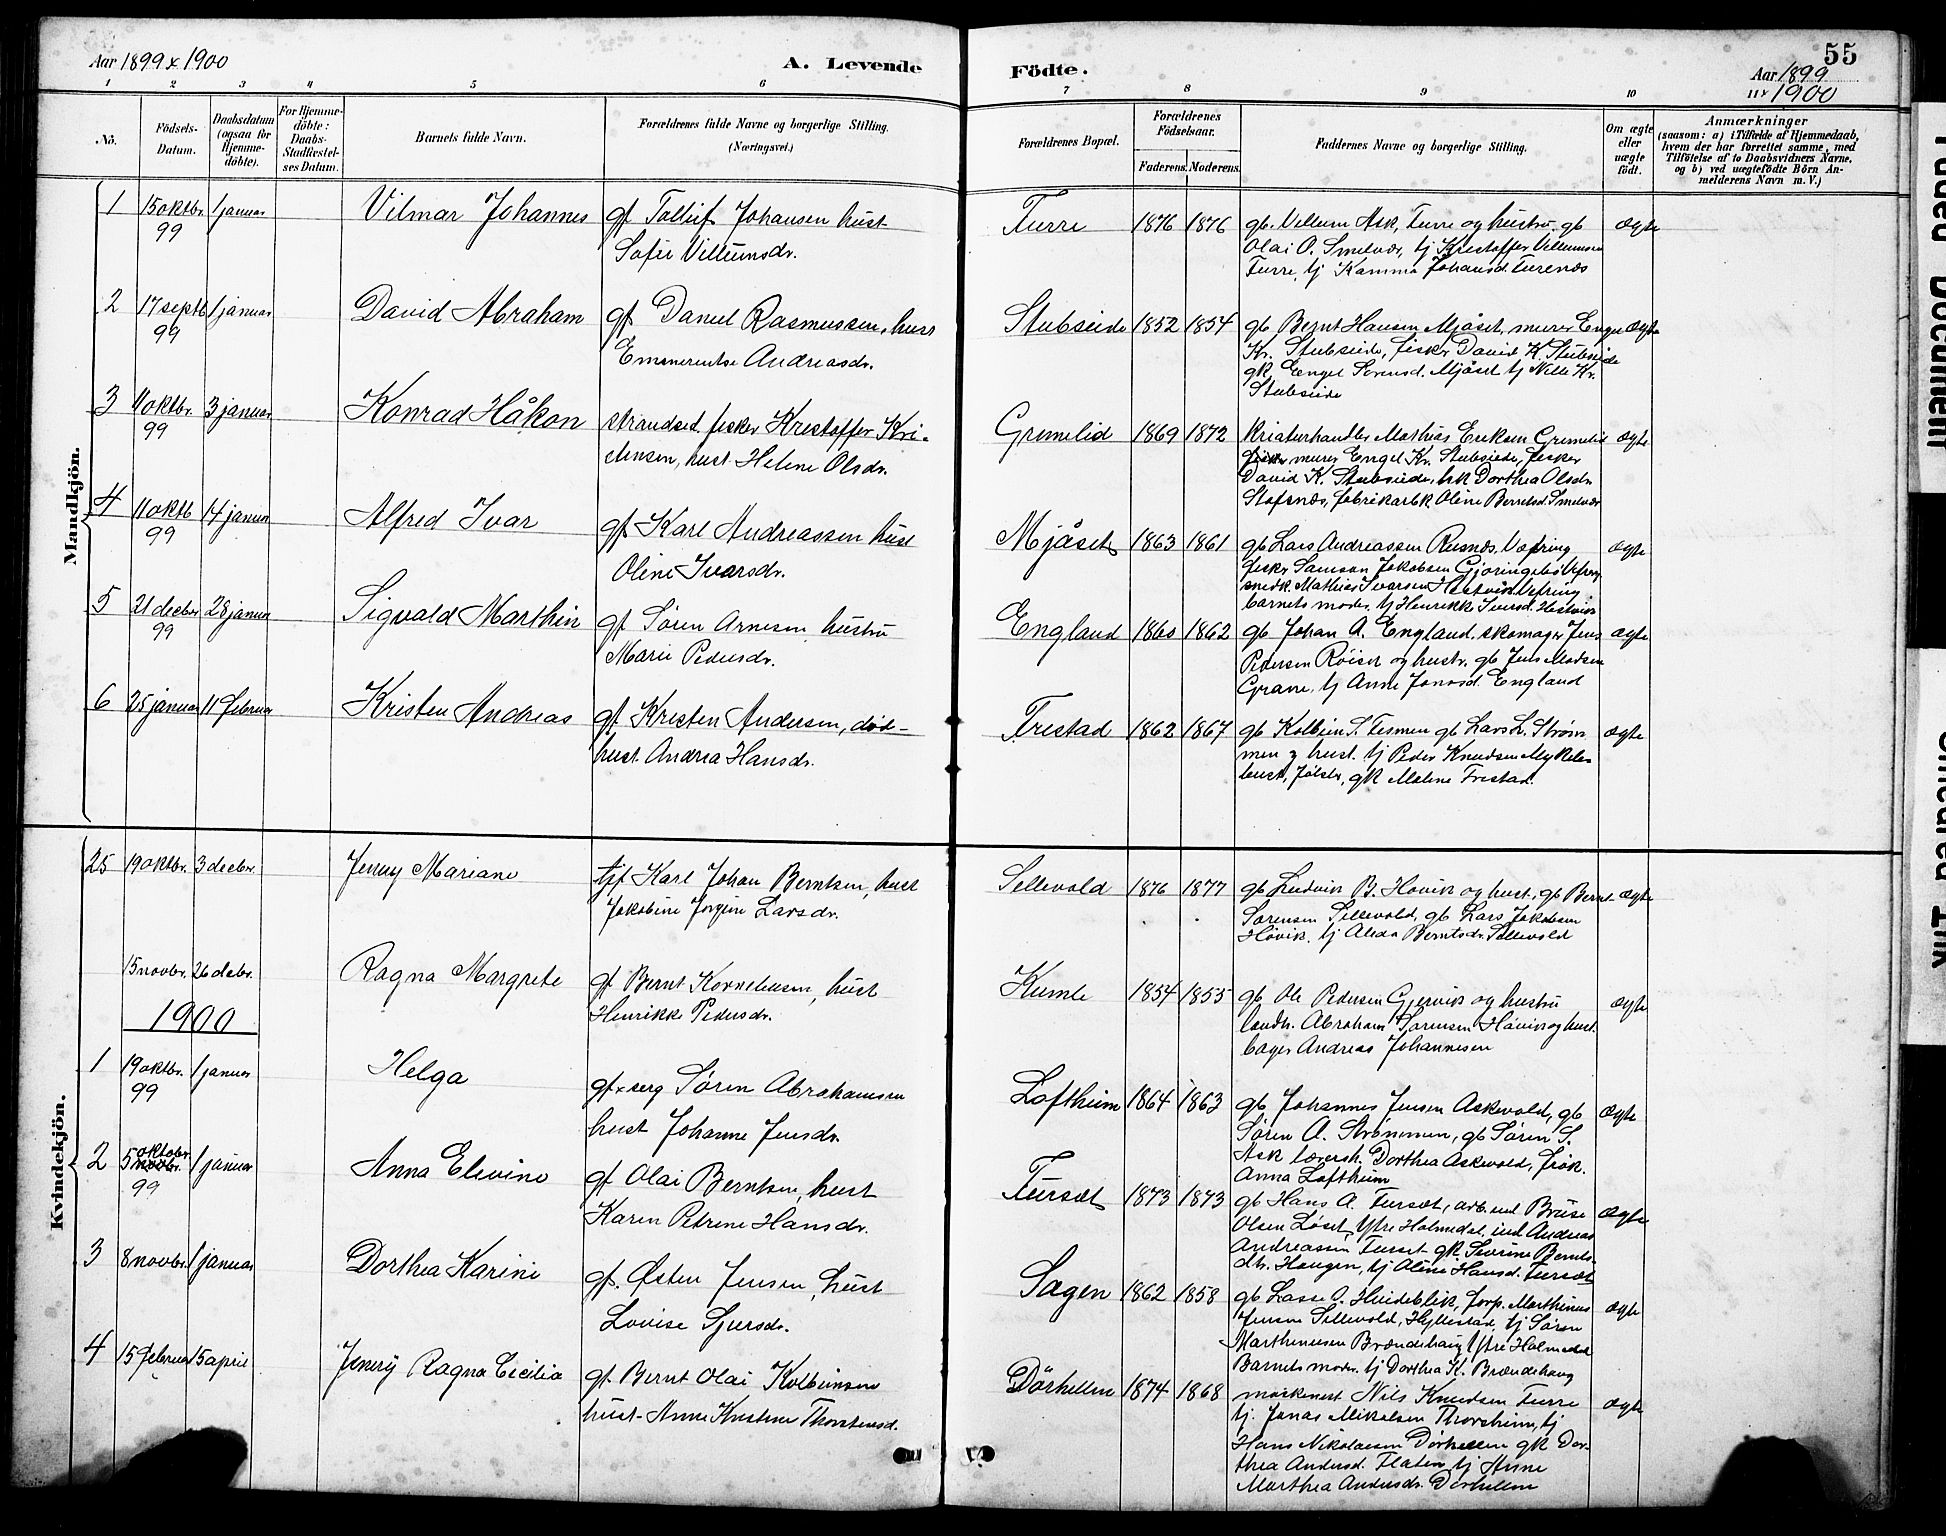 Aar 1899 x 1900
A. Levende
Födte.
55
Aar 1899
11 x 1900
1 2 3 4 5 6 7 8 9 10
No.
Födsels-Datum.
Daabsdatum (ogsaa for Hjemme-döbte).
For Hjemme-döbte: Daabs-Stadfæstel-ses Datum.
Barnets fulde Navn.
Forældrenes fulde Navne og borgerlige Stilling.
(Næringsvei.)
Forældrenes Bopæl.
Forældrenes Födselsaar.
Faderens. Moderens.
Faddernes Navne og borgerlige Stilling.
Om ægte eller uægte födt.
Anmærkninger
(saasom: a) i Tilfælde af Hjemmedaab,
hvem der har forrettet samme, med
Tilföielse af to Daabsvidners Navne,
og b) ved uægtefödte Börn An-
melderens Navn m. V.)
Mandkjön.
1 15 oktbr. 99 1 januar Vilmar Johannes gf Tolleif Johansen hust
Sofie Villumsdr.
Furre 1876 1876 gb. Villum Ask, Furre og hustru, gb
Olai O. Smelvær, tj Kristoffer Villumsen
Furre, tj Kamma Johansd. Furenæs
ægte
2 17 septb 99 1 januar David Abraham gf Daniel Rasmussen, hust
Emmerentse Andreasdr.
Stubseide 1852 1854 gb Bernt Hansen Mjåset, murer Engel
Kr. Stubseide, fisker David K. Stubseide
gk Engel Sorensd. Mjåset tj Nille Kr.
Stubseide
ægte
3 11 oktbr. 99 3 januar Konrad Håkon strandsid. fisker Kristoffer Kri-
stensen, hust Helene Olsdr.
Grimelid 1869 1872 Kriaturhandler Mathias Eriksen Grimelid
murer Engel Kr. Stubseide, fisker
David K. Stubseide, hk Dorthea Olsdr.
Stafsnæs, fabrikarbk Oline Berntsd. Smelvær
ægte
4 11 oktb 99 14 januar Alfred Ivar gf Karl Andreassen hust
Oline Ivarsdr.
Mjåset 1863 1861 gb Lars Andreassen Risnæs, Vefring
fisker Samson Jakobsen Gjøringebø Vefring
snedk. Mathias Ivarsen Hestvik Vefring
barnets moder, tj Henrikke Ivarsd. Hestvik
ægte
5 21 decbr 99 28 januar Sigvald Marthin gf Søren Arnesen, hustru
Marie Pedersdr.
England 1860 1862 gb Johan A. England, skomager Jens
Pedersen Röiset og hustr. gb Jens Madsen
Grane, tj Anne Jonasd. England
ægte
6 25 januar 11 februar Kristen Andreas gf. Kristen Andersen, död-
hust. Andrea Hansdr.
Frestad 1862 1867 gb Kolbein S. Tesmen gb Lars L. Strøm-
men og hust. tj Peder Knudsen Mykle-
bust, Jölster, gk Malene Frestad.
ægte
Kvindekjön.
25 19 oktbr. 3 decbr. Jenny Mariane tjf Karl Johan Berntsen, hust
Jakobine Jorgine Larsdr.
Sellevold 1876 1877 gb Ludvik B. Hovik og hust. gb Bernt
Sørensen Sellevold, gb Lars Jakobsen
Høvik, tj Alida Berntsdr. Sellevold
ægte
15 novbr. 26 decbr. Ragna Margrete gf Bernt Korneliusen, hust
Henrikke Pedersdr.
Kumle 1854 1855 gb Ole Pedersen Gjervik og hustru
landh. Abraham Sørensen Håvik og hust.
bager Andreas Johannesen
ægte
1900
1 19 oktbr. 99 1 januar Helga gf x serg Søren Abrahamsen
hust Johanne Jensdr.
Loftheim 1864 1863 gb Johannes Jensen Askevold, gb
Søren A. Strømmen, gb Søren S.
Ask lærersk. Dorthea Askevold, frök.
Anna Loftheim
ægte
2 5 oktober novbr. 99 1 januar Anna Elevine gf Olai Berntsen, hust
Karen Petrine Hansdr.
Fursæt 1873 1873 gb Hans A. Fursæt, arb. ind Brüse
Olsen Løset, Ytre Holmedal, ind Andreas
Andreassen Furset gk Severine Bernts-
dtr. Haugen, tj Aline Hansd. Fursæt
ægte
3 8 novbr. 1 januar Dorthea Karine gf. Østen Jensen, hust
Lovise Sjursdr.
Sagen 1862 1858 gb Lasse O. Hvideblik, forp. Marthinus
Jensen Sellevold, Hyllestad, tj Søren
Marthinussen Brændehaug Ytre Holmedal
Barnets moder, tj Dorthea K. Brændehaug
ægte
4 15 februar 15 april Jenny Ragna Cecilia gf. Bernt Olai Kolbeinsen
hust- Anne Kristine Thorstensd.
Dörhellen 1874 1868 maskenist Nils Knudsen Furre
tj. Jonas Mikalsen Thorsheim, tj
Hans Nikolaisen Dörhellen gk Dor-
thea Andersd. Flaten, tj Anne
Marthea Andersdr. Dörhellen
ægte